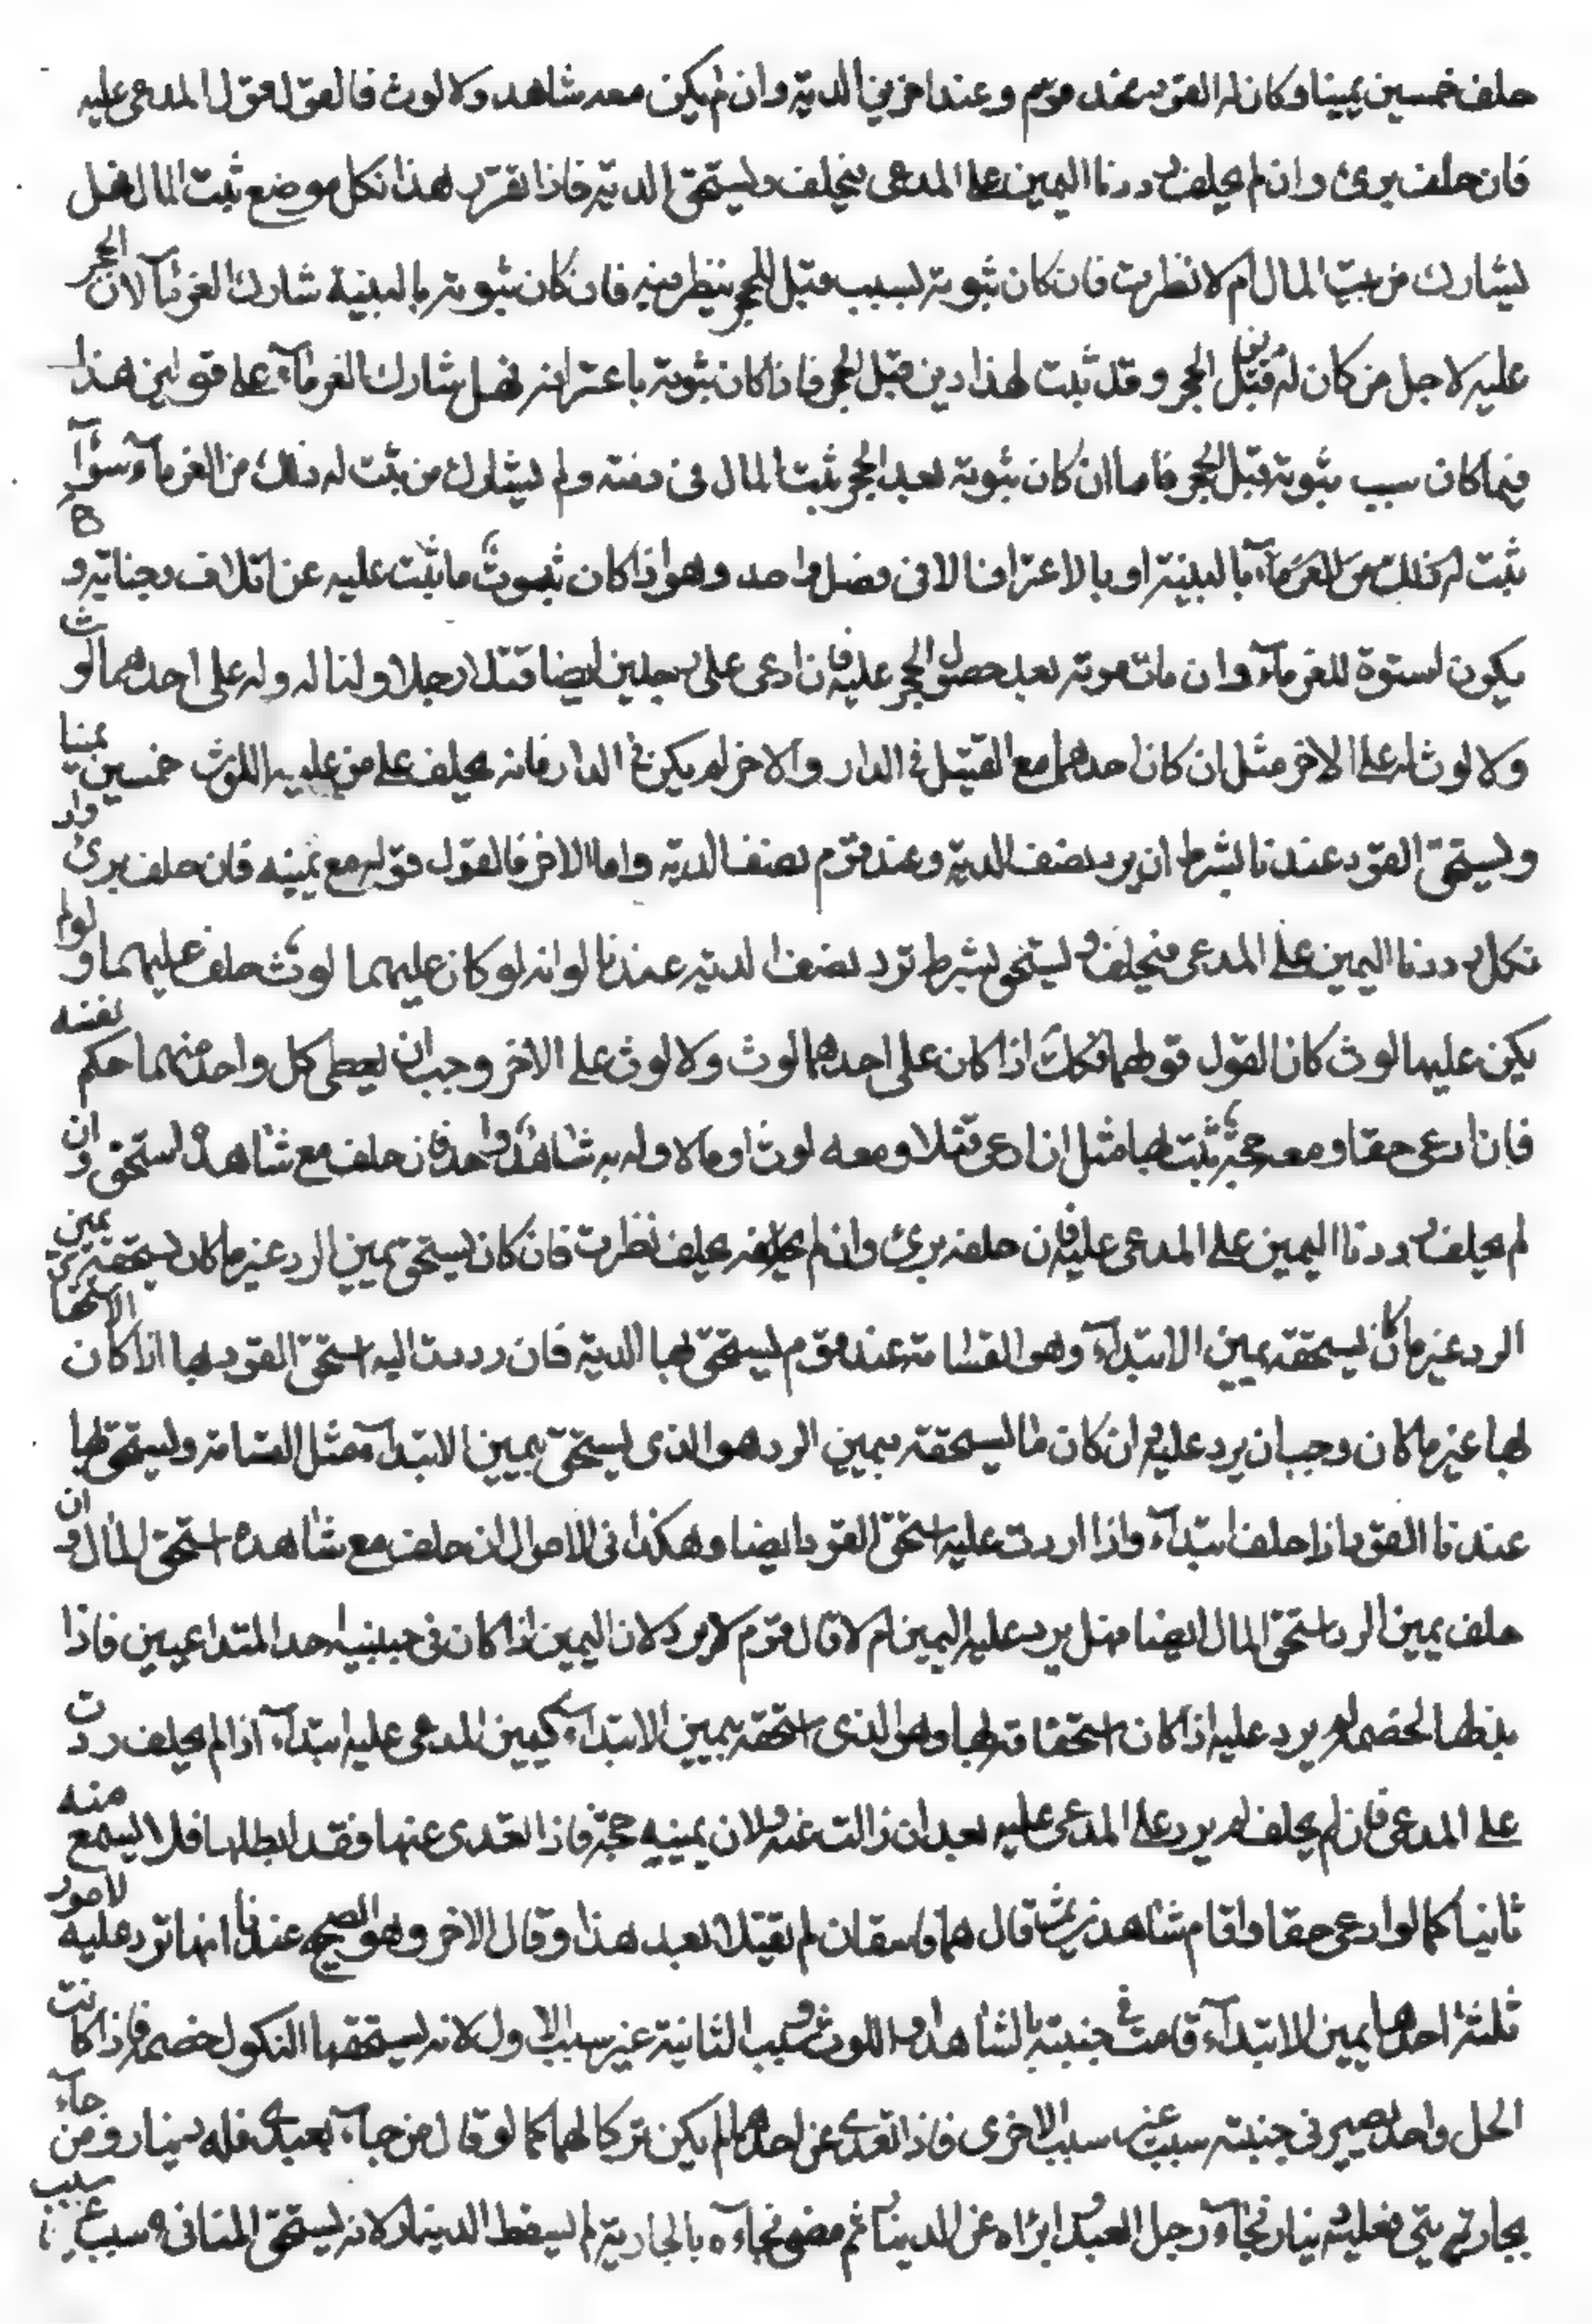 حلف خمسين يمينا وكان له القود عند قوم وعند اخرين الدية وان لم يكن معه شاهد ولا لوث فالقول قول المدعى عليه
فان حلف برئ وان لم يحلف رددنا اليمين على المدعى فيحلف ويستحق الدية فاذا تقرر هذا فكل موضع ثبت المال فهل
يشارك من ثبت المال ام لا نظرت فان كان ثبوته بسبب قبل الحجر ينظر فيه فان كان ثبوته بالبينة شارك الغرماء لان الحجر
عليه لاجل من كان له قبل الحجر وقد ثبت لهذا دين قبل الحجر فاذا كان ثبوته باعترافه فهل شارك الغرماء على قولين هذا
فيما كان سبب ثبوته قبل الحجر فاما ان كان ثبوته بعد الحجر ثبت المال في ذمته ولم يشارك من ثبت له ذلك من الغرماء سواء
ثبت له ذلك من الغرماء بالبينة او بالاعتراف الا في فصل واحد وهو اذا كان ثبوت ما يثبت عليه عن اتلاف وجناية و
يكون اسوة للغرماء وان مات موته بعد حصول الحجر عليه فان ادعى على رجلين ايضا قتلا رجلا ولنا له وله على احدهما لوث
ولا لوث له على الاخر مثل ان كان احدهما مع القتيل في الدار والاخر لم يكن في الدار فانه يحلف على من عليه اللوث خمسين يمينا
ويستحق القود عندنا بشرط ان يرد نصف الدية وعند قوم نصف الدية واما الاخر فالقول قوله مع يمينه فان حلف برئ وان
نكل رددنا اليمين على المدعى فيحلف ويستحق بشرط ترد نصف الدية عندنا لوانه لو كان عليهما لوث حلف عليهما ولو لم
يكن عليهما لوث كان القول قولهما فكذلك اذا كان على احدهما لوث ولا لوث على الاخر وجب ان يعطى كل واحد منهما حكم نفسه
فان ادعى حقا ومعه حجة ثبت لها مثل ان ادعى قتلا ومعه لوث او مالا وله به شاهد واحد فان حلف مع شاهده استحق وان
لم يحلف رددنا اليمين على المدعى عليه فان حلف برئ وان لم يحلف نظرت فان كان يستحق بيمين الرد غير ما كان يستحقه بيمين
الرد غير ما كان يستحقه بيمين الابتداء وهو القسامة عند قوم يستحق بها الدية فان ردت اليه استحق القود بها اذا كان الاستحقاق
بها غير ما كان وجب ان يرد عليه وان كان ما يستحقه بيمين الرد هو الذى يستحق بيمين الابتداء مثل القسامة ويستحق بها
عندنا القود اذا حلف ابتداء واذا اردت عليه استحق القود ايضا وهكذا في الاموال ان حلف مع شاهده استحق المال وان
حلف يمين الرد استحق المال ايضا فهل يرد عليه اليمين ام لا قال قوم لا يرد لان اليمين اذا كان في جنبيه احد المتداعيين فاذا
بذلها لخصمه لم يرد عليه اذا كان استحقاقه بها وهو الذى استحقه بيمين الابتداء كيمين المدعى عليه ابتداء اذا لم يحلف ردت
على المدعى فان لم يحلف لم يرد على المدعى عليه بعد ان زالت عنه ولان يمينه حجة فاذا تعدى عنها فقد ابطلها فلا يسمع منه
ثانيا كما لو ادعى حقا واقام شاهدين ثم قال هما فاسقان لم تقبلا بعد هذا وقال الاخر وهو الصحيح عندنا انها ترد عليه لامور
ثلثة احدها يمين الابتداء قامت في جنبته بالشاهد واللوث وسبب الثانية غير سبب الاول لانه يستحقها النكول لخصمه فاذا كانت
الحل واحد يصير في جنبته سبب غير سبب الاخرى فاذا تعدى عن احدهما لم يكن تركا لهما كما لو قال من جاء بعبدى فله دينار ومن جاء
بجاريتى فعليه دينار فجاء رجل العبد وابراه عن الدينار ثم مضى فجاءه بالجارية لم يسقط الدينار لانه يستحق الثاني بسبب